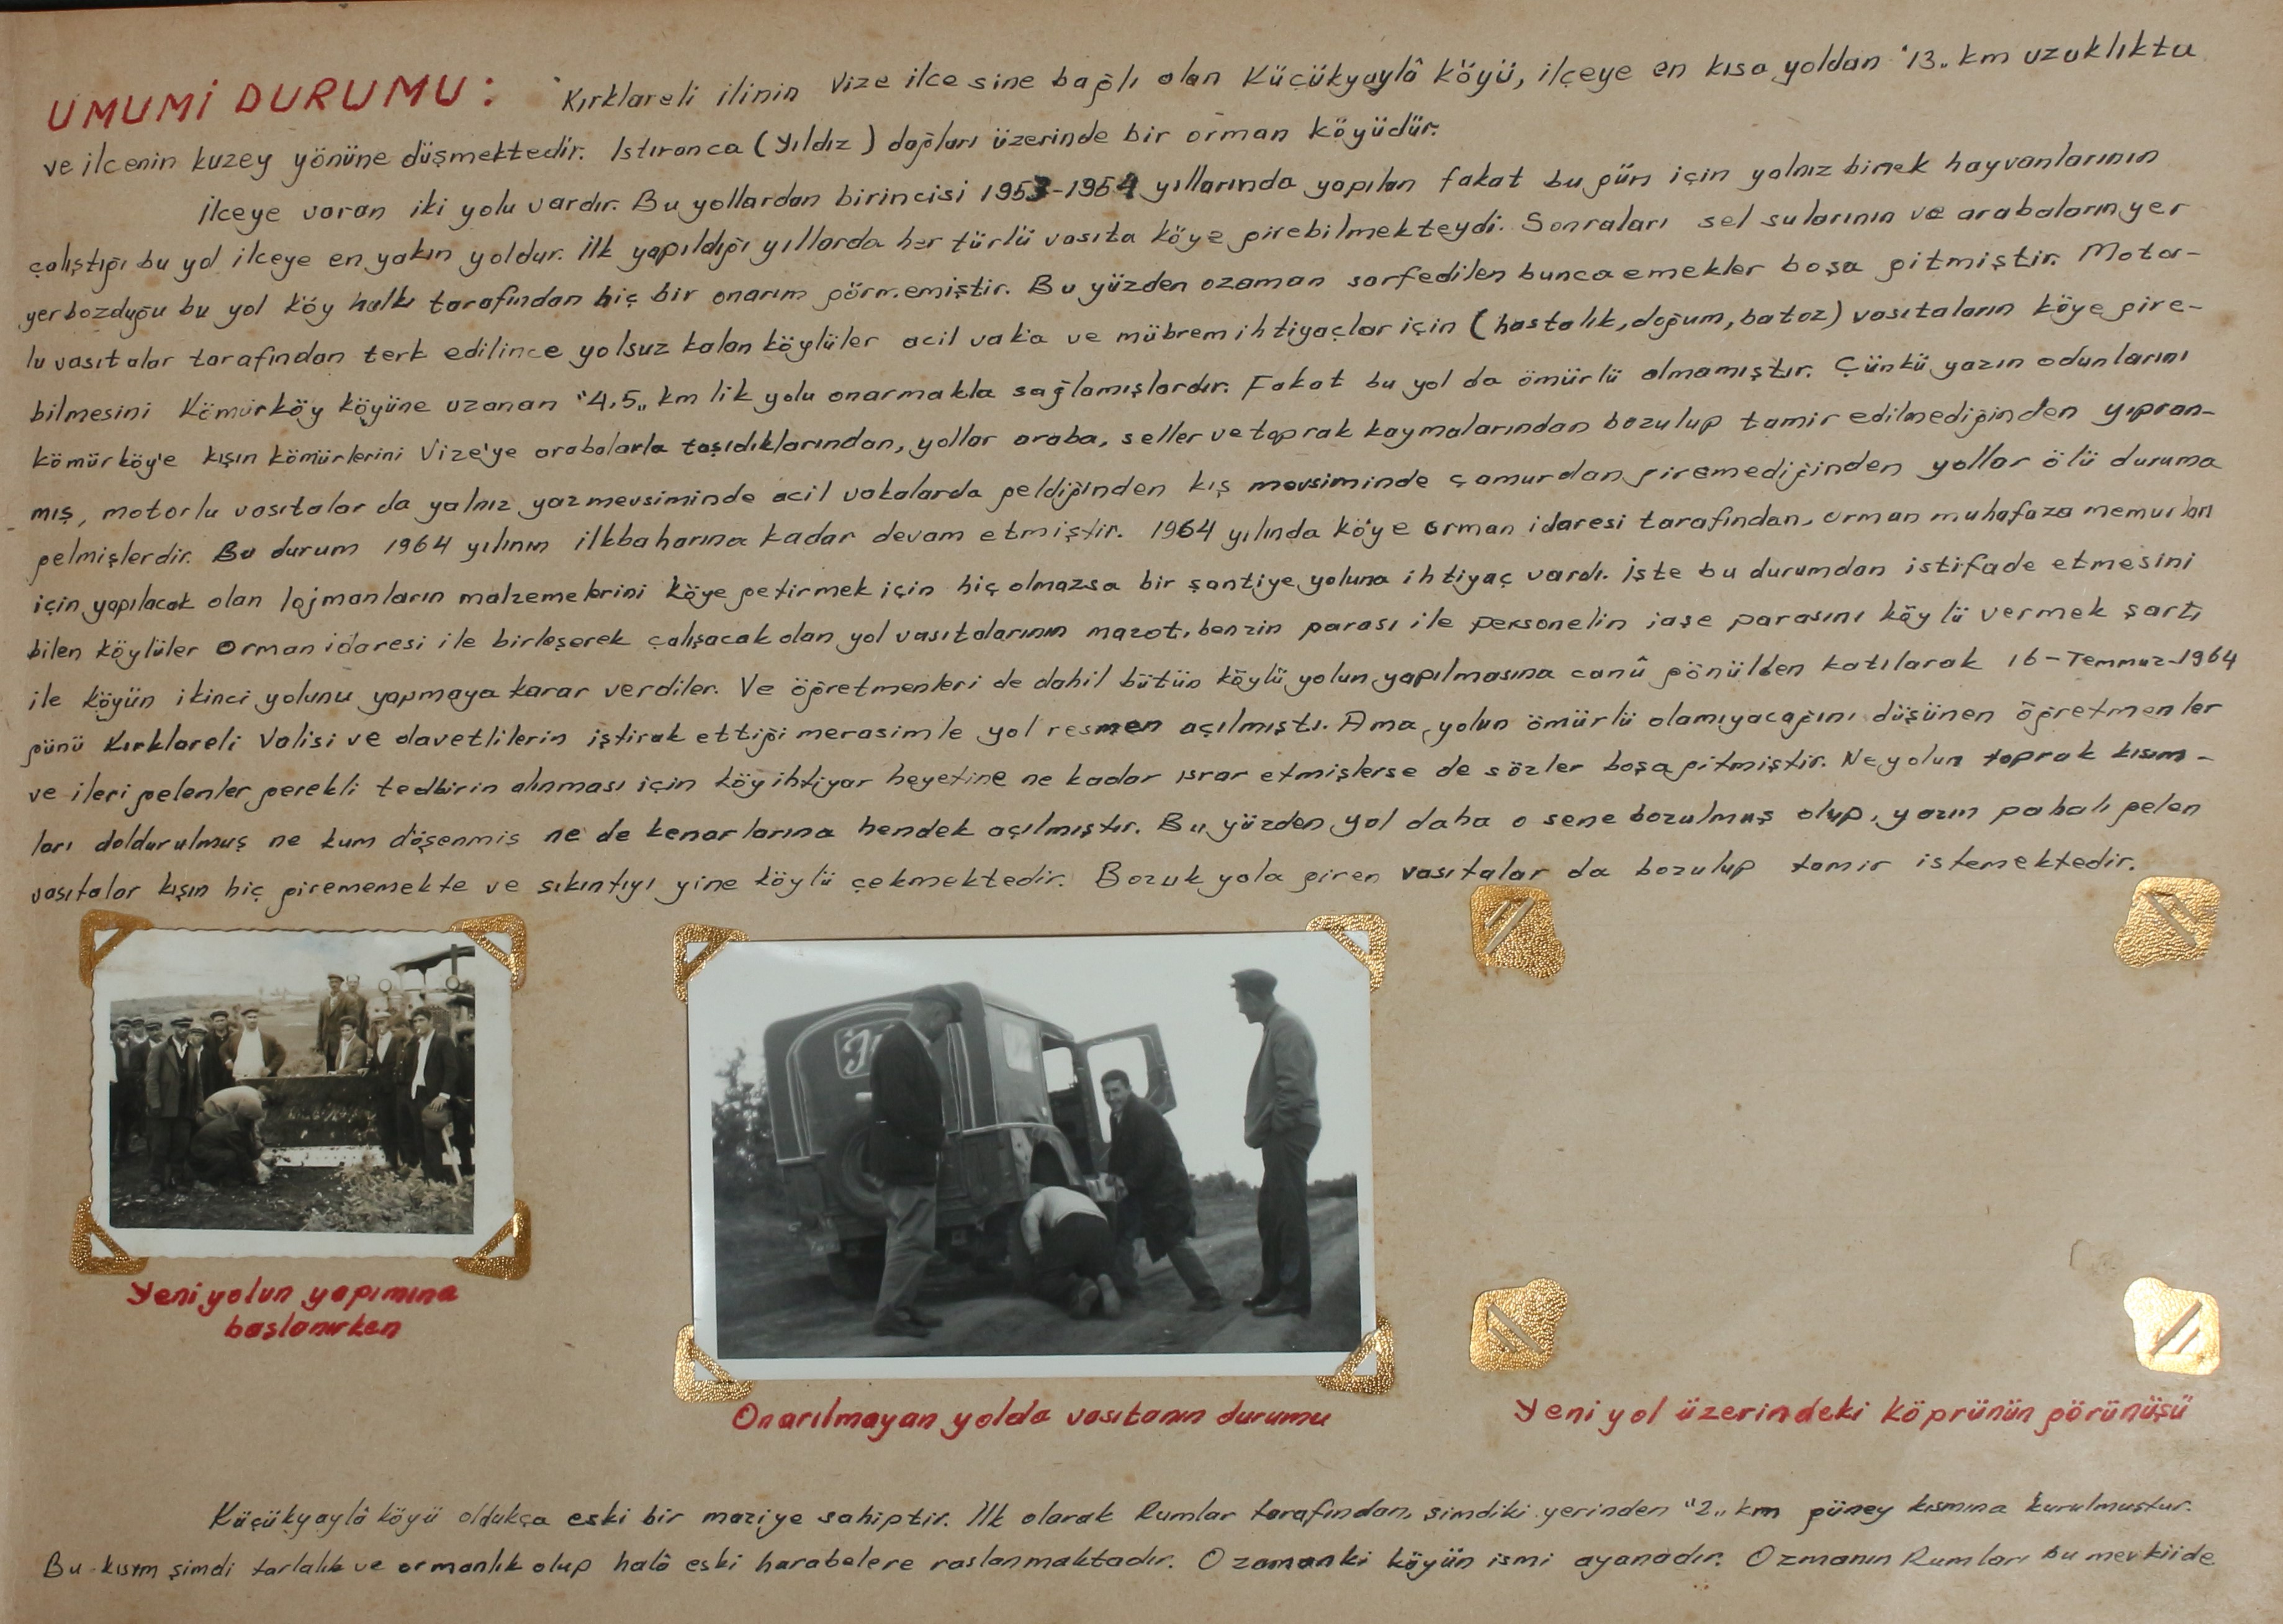 UMUMİ DURUMU: Kırklareli ilinin Vize ilcesine bağlı olan Küçükyaylâ köyü, ilçeye en kısa yoldan "13" km uzaklıkta
ve ilcenin kuzey yönüne düşmektedir. Istıranca (Yıldız) dağları üzerinde bir orman köyüdür.
İlceye varan iki yolu vardır. Bu yollardan birincisi 1953-1954 yıllarında yapılan fakat bu gün için yalnız binek hayvanlarının
çalıştığı bu yol ilceye en yakın yoldur. İlk yapıldığı yıllarda her türlü vasıta köye girebilmekteydi. Sonraları sel sularının ve arabaların yer
yer bozduğu bu yol köy halkı tarafından hiç bir onarım görmemiştir. Bu yüzden ozaman sarfedilen bunca emekler boşa gitmiştir. Motor-
lu vasıtalar tarafından terk edilince yolsuz kalan köylüler acil vak'a ve mübrem ihtiyaçlar için (hastalık, doğum, batoz) vasıtaların köye gire-
bilmesini Kömürköy köyüne uzanan "4,5" km lik yolu onarmakla sağlamışlardır. Fakat bu yol da ömürlü olmamıştır. Çünkü yazın odunlarını
kömürköy'e kışın kömürlerini Vize'ye arabalarla taşıdıklarından, yollar araba, seller ve toprak kaymalarından bozulup tamir edilmediğinden yıpran-
mış, motorlu vasıtalar da yalnız yaz mevsiminde acil vakalarda geldiğinden kış mevsiminde çamurdan giremediğinden yollar ölü duruma
gelmişlerdir. Bu durum 1964 yılının ilkbaharına kadar devam etmiştir. 1964 yılında köye orman idaresi tarafından, orman muhafaza memurları
için yapılacak olan lojmanların malzemelerini köye getirmek için hiç olmazsa bir şantiye yoluna ihtiyaç vardı. İşte bu durumdan istifade etmesini
bilen köylüler orman idaresi ile birleşerek çalışacak olan yol vasıtalarının mazot, benzin parası ile personelin iaşe parasını köylü vermek şartı
ile köyün ikinci yolunu yapmaya karar verdiler. Ve öğretmenleri de dahil bütün köylü yolun yapılmasına canû gönülden katılarak 16-Temmuz-1964
günü Kırklareli Valisi ve davetlilerin iştirak ettiği merasimle yol resmen açılmıştı. Ama, yolun ömürlü olamıyacağını düşünen öğretmenler
ve ileri gelenler gerekli tedbirin alınması için köy ihtiyar heyetine ne kadar ısrar etmişlerse de sözler boşa gitmiştir. Ne yolun toprak kısım-
ları doldurulmuş ne kum döşenmis ne de kenarlarına hendek açılmıştır. Bu yüzden yol daha o sene bozulmuş olup, yazın pahalı gelen
vasıtalar kışın hiç girememekte ve sıkıntıyı yine köylü çekmektedir. Bozuk yola giren vasıtalar da bozulup tamir istemektedir.
Yeni yolun yapımına
başlanırken
Onarılmayan yolda vasıtanın durumu
Yeni yol üzerindeki köprünün görünüşü
Küçükyaylâ köyü oldukça eski bir maziye sahiptir. İlk olarak Rumlar tarafından, şimdiki yerinden "2" km güney kısmına kurulmuştur.
Bu kısım şimdi tarlalık ve ormanlık olup halâ eski harabelere raslanmaktadır. O zamanki köyün ismi ayanadır. Ozmanın Rumları bu mevkiide